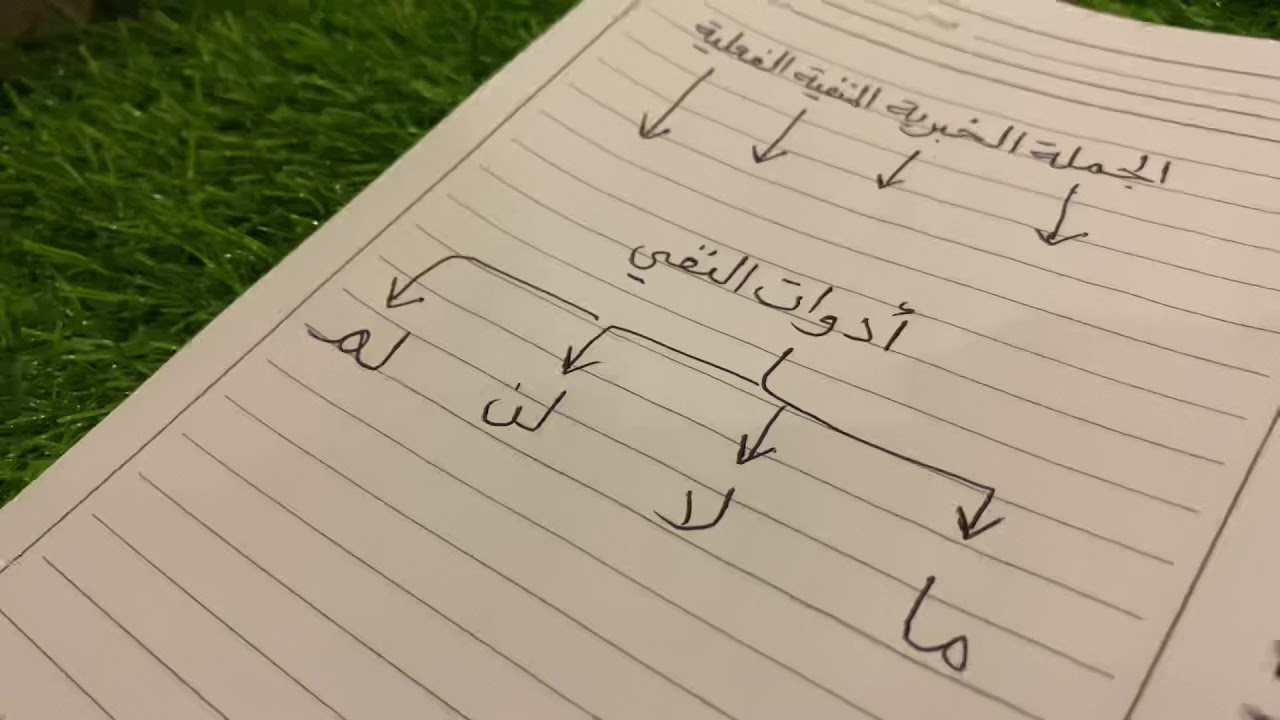 الجملة الخبرية المنفية الفعلية
أدوات النفي
ما لا لن لم